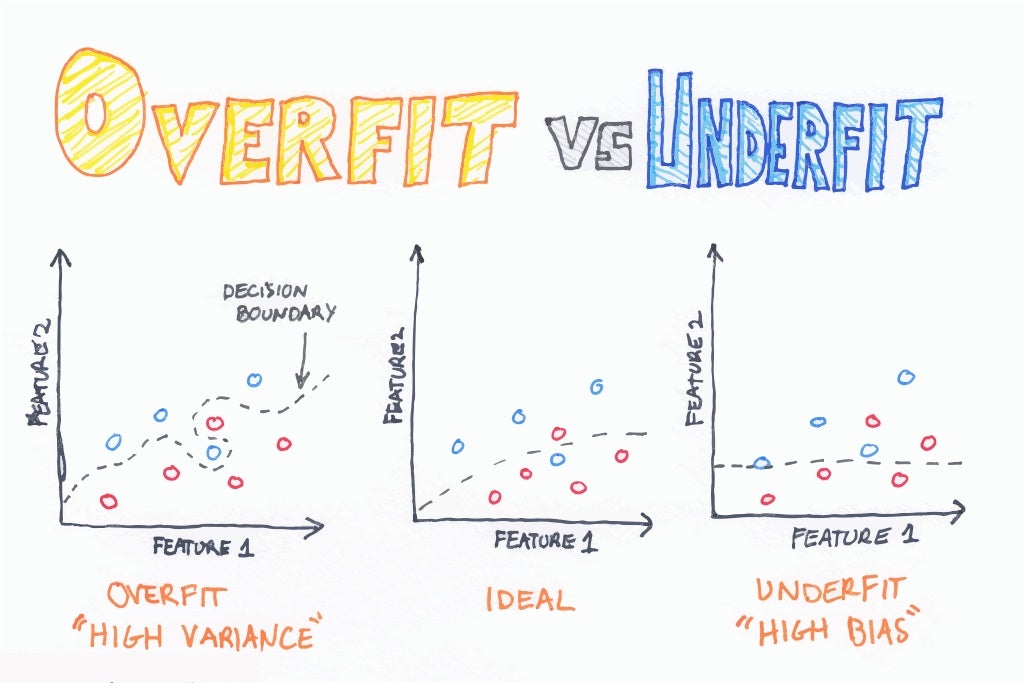 OVERFIT VS UNDERFIT
DECISION
BOUNDARY
FEATURE 2
FEATURE 1
OVERFIT
"HIGH VARIANCE"
FEATURE2
FEATURE 1
IDEAL
FEATURE 2
FEATURE 1
UNDERFIT
"HIGH BIAS"